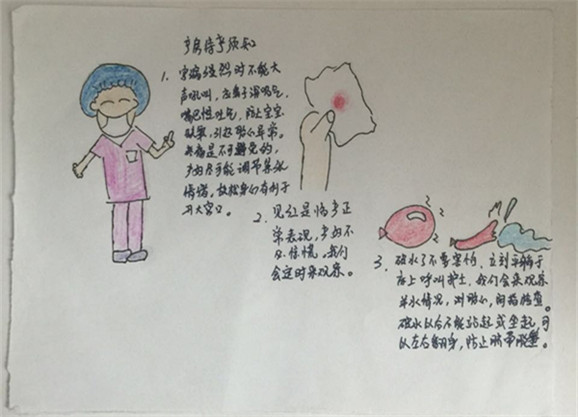 产房待产须知
1. 宫缩强烈时不能大
声吼叫，应鼻子深吸气，
嘴巴慢吐气，防止宝宝
缺氧，引起胎心异常。
疼痛是不可避免的，
产妇尽可能调节其
情绪，放松身心有利于
开大宫口。
2. 见红是临产正
常表现，产妇不
必惊慌，我们
会定时来观察。
3. 破水了不要害怕，立刻平躺于
床上呼叫护士，我们会来观察
羊水情况，测胎心，内指检查。
破水以后不能站起或坐起，可
以左右翻身，防止脐带脱垂。